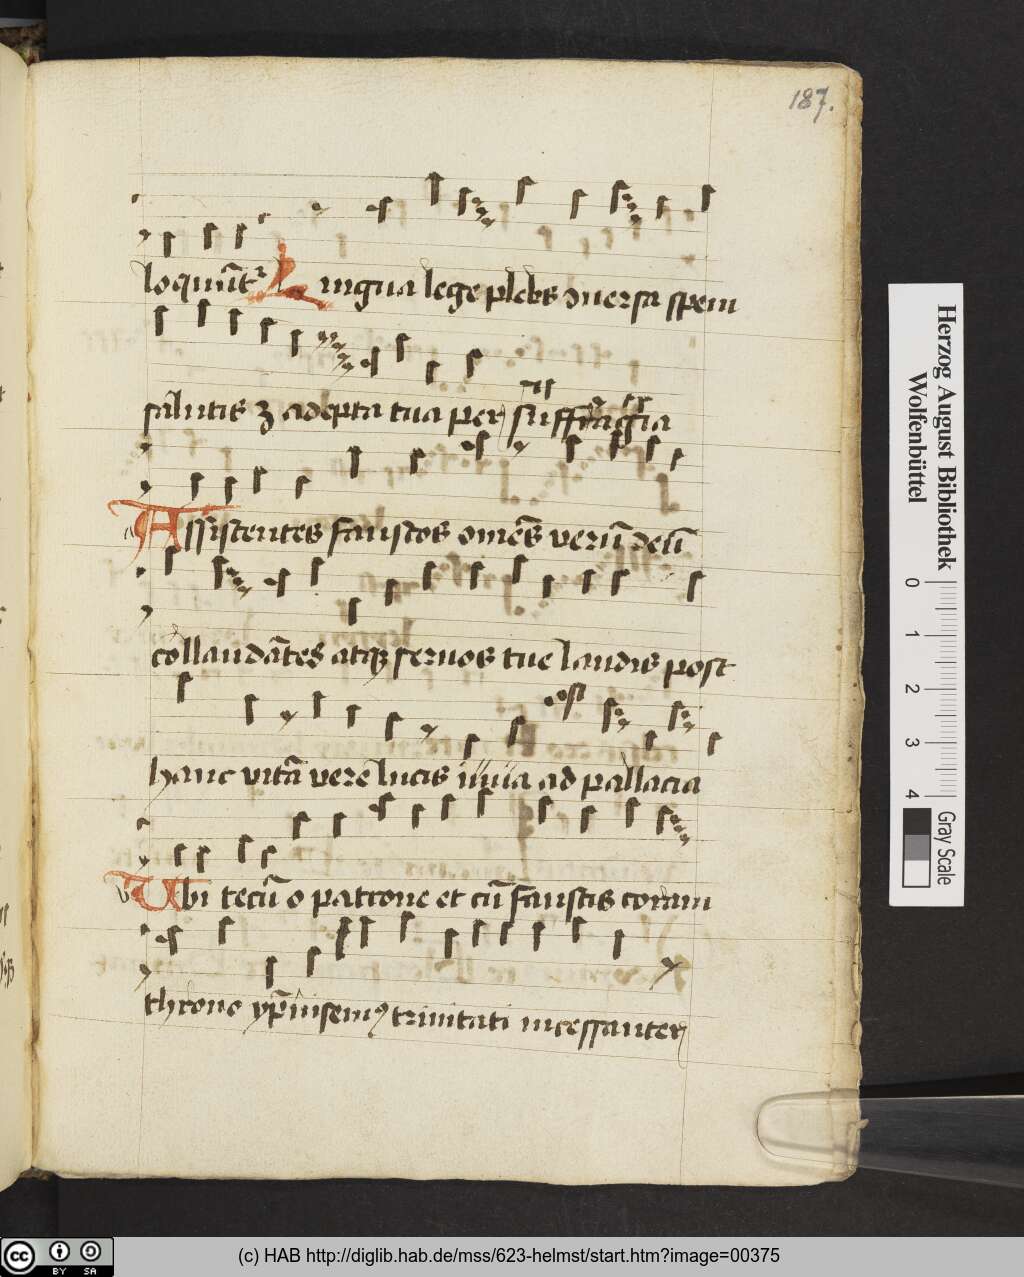 187.
loquūt᷑ Lingua lege plebs ɔuersa spem
salutis ⁊ adepta tua per suffragia
Assistentes faustos omēs verū deū
collaudātes atqꝫ seruos tue laudis post
hanc vitā vere lucis iuua ad pallacia
Ubi tecū o patrone et cū faustis coram
throno yp̄msemꝰ trinitati incessanter
Herzog August Bibliothek
Wolfenbüttel
0 1 2 3 4
Gray Scale
cc BY SA
(c) HAB http://diglib.hab.de/mss/623-helmst/start.htm?image=00375